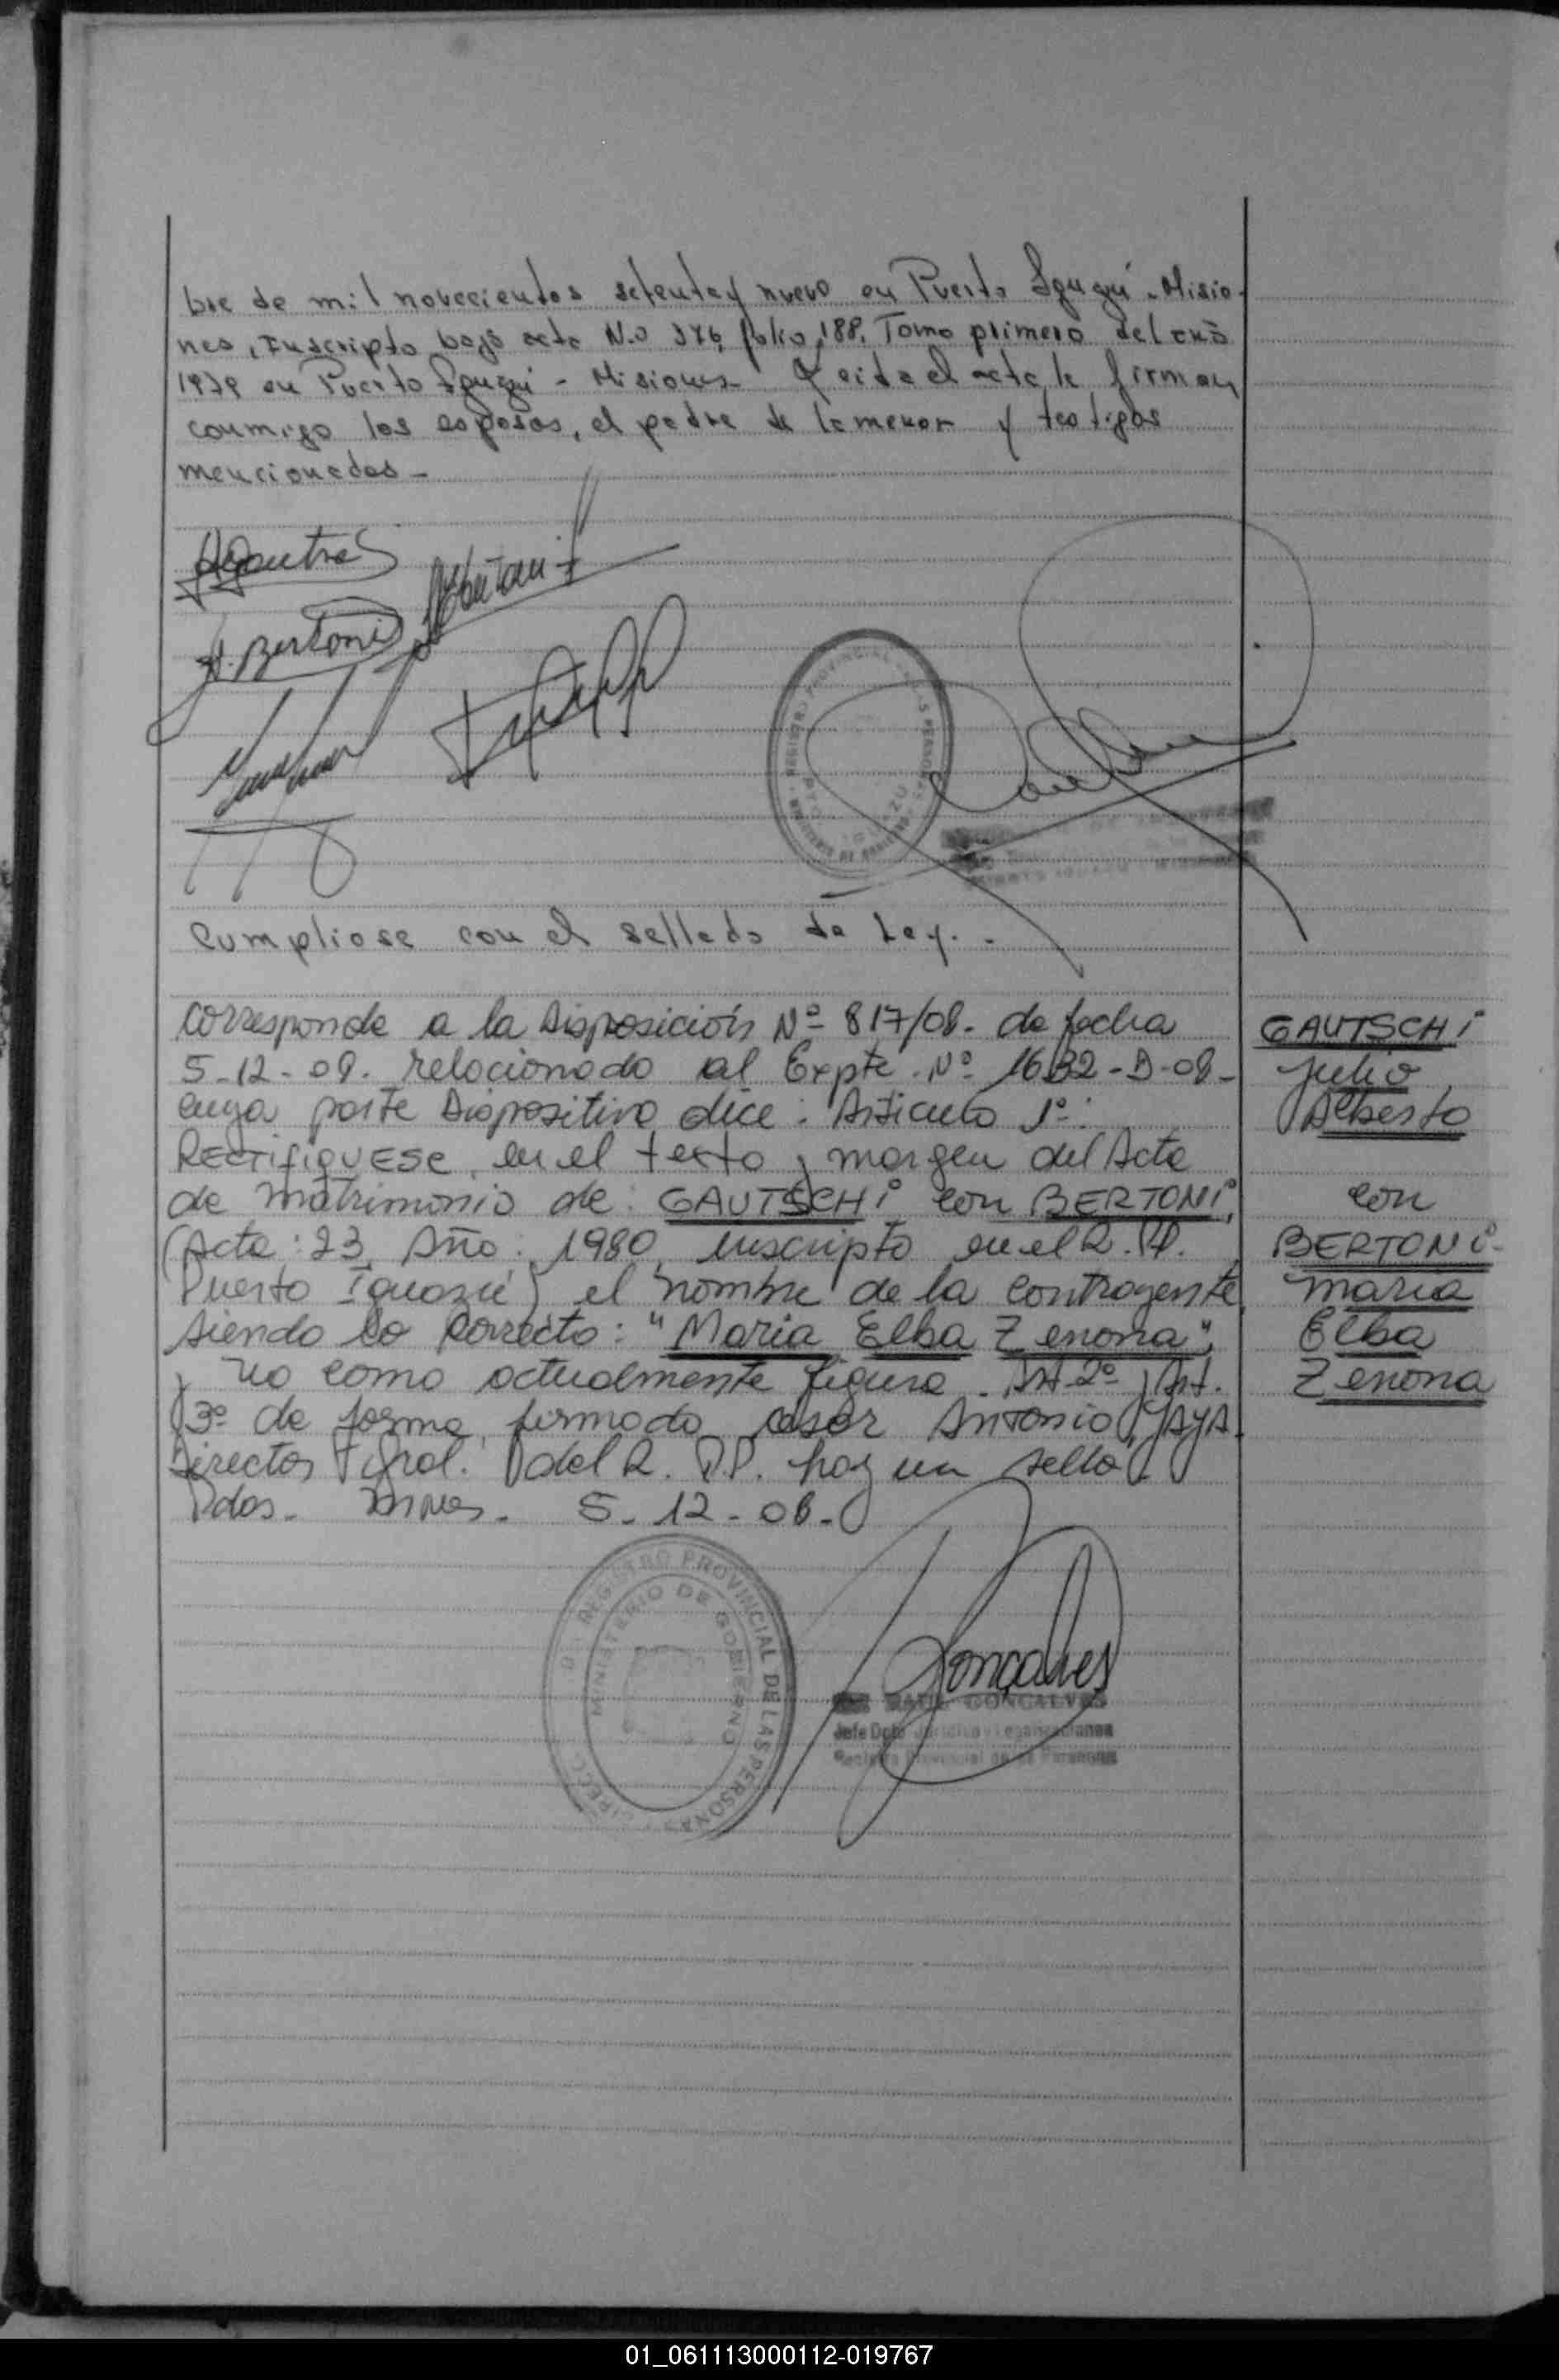 bre de mil novecientos setenta y nueve en Puerto Iguazú - Misio-
nes, Inscripto bajo acta N.o 376, folio 188, Tomo primero del año
1979 en Puerto Iguazú - Misiones - Leida el acta la firman
conmigo los esposos, el padre de la menor y testigos
mencionados -
J. Bertoni
REGISTRO PROVINCIAL DE LAS PERSONAS
IGUAZU
Cumpliose con el sellado de Ley. -
Corresponde a la Disposición Nº 817/08. de fecha
5-12-08. relacionado al Expte. Nº 1632-D-08-
cuya parte Dispositiva dice: Articulo 1º:
RECTIFIQUESE en el texto y margen del Acta
de matrimonio de: GAUTSCHI con BERTONI,
(Acta: 23, Año: 1980, inscripto en el R.P.
Puerto Iguazú) el nombre de la contrayente
siendo lo Correcto: "Maria Elba Zenona",
y no como actualmente figura. Art 2º y Art.
3º de forma, firmado Cesar Antonio YAYA
Director Gral. del R. P.P. hay un sello
Pdas. Mnes. 5-12-08.
GAUTSCHI
Julio
Alberto
con
BERTONI-
Maria
Elba
Zenona
REGISTRO PROVINCIAL DE LAS PERSONAS
MINISTERIO DE GOBIERNO
Gonçalves
RAUL GONCALVES
Jefe Dpto Juridico y Legalizaciones
Registro Provincial de las Personas
01_061113000112-019767